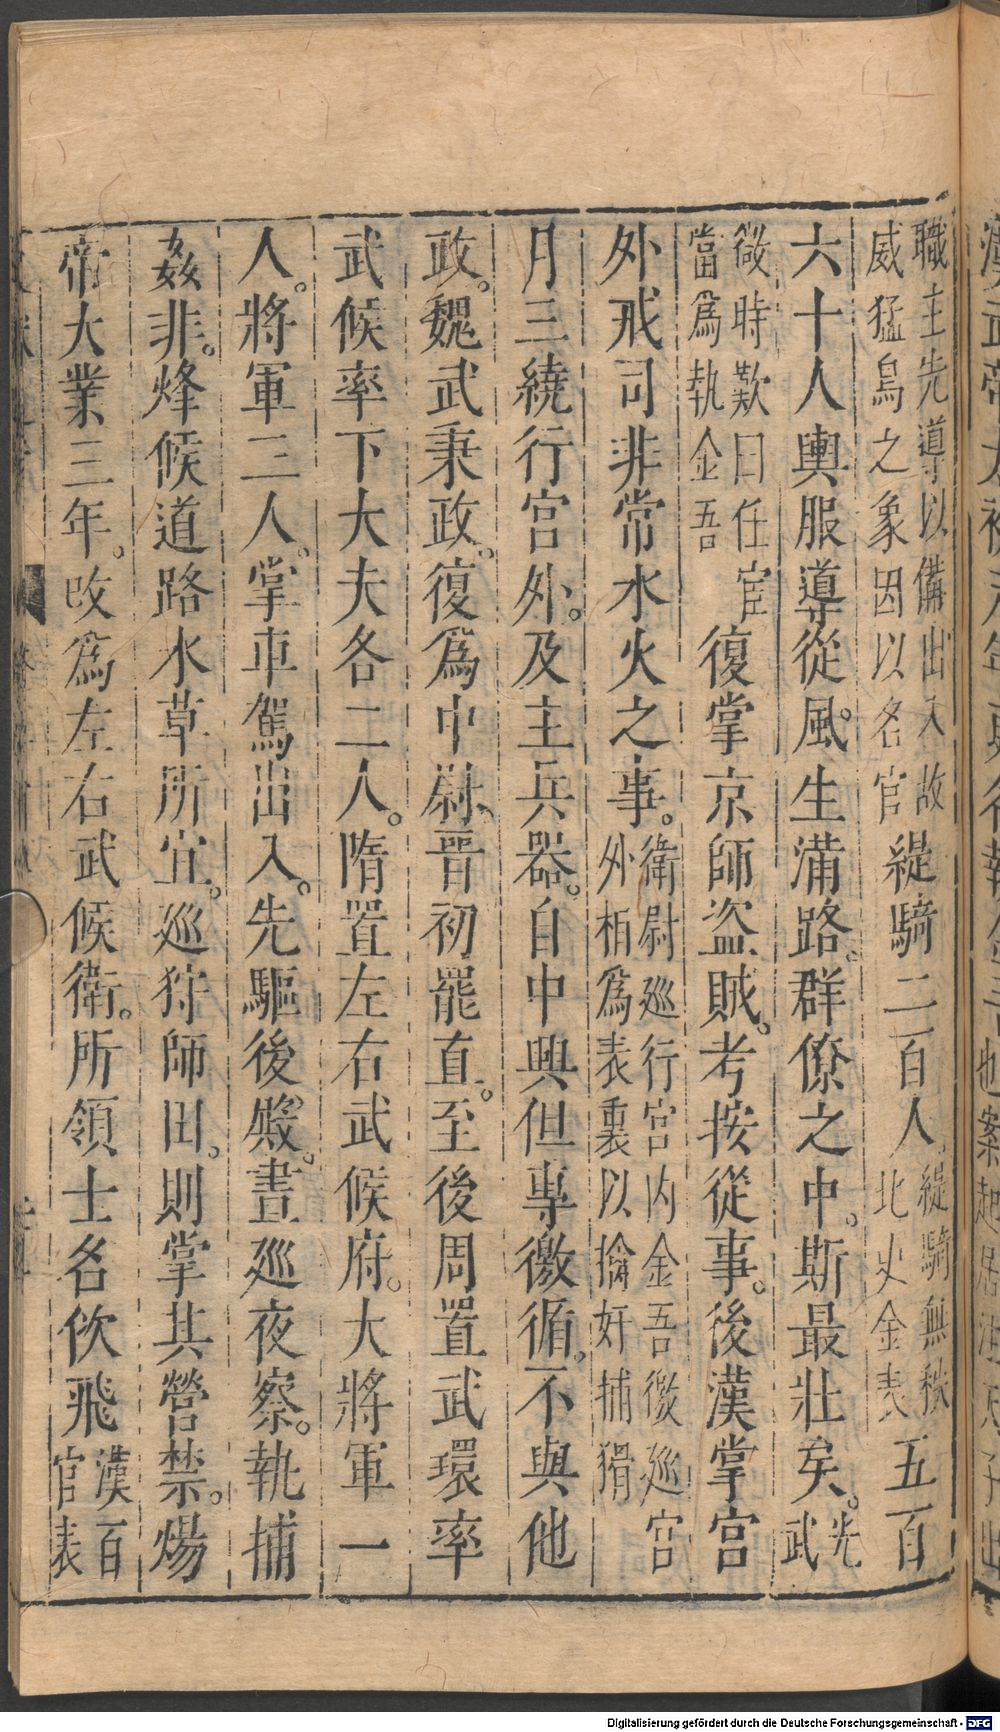 職主先導以備出入故
威猛鳥之象因以名官
緹騎二百人
緹騎無秩
北史金表
五百
六十人輿服導從風生滿路群僚之中斯最壯矣
先
武
微時歎曰任宦
當爲執金吾
復掌京師盜賊考按從事後漢掌宮
外戒司非常水火之事
衛尉巡行宮内金吾徼巡宮
外栢爲表裏以擒奸捕猾
月三繞行宮外及主兵器自中興但專徼循不與他
政魏武秉政復爲中尉晉初罷直至後周置武環率
武候率下大夫各二人隋置左右武候府大將軍一
人將軍二人掌車駕出入先驅後殿晝巡夜察執捕
姦非烽候道路水草所宜巡狩師田則掌其營禁煬
帝大業三年改爲左右武候衛所領士名佽飛
漢百
官表
Digitalisierung gefördert durch die Deutsche Forschungsgemeinschaft - DFG